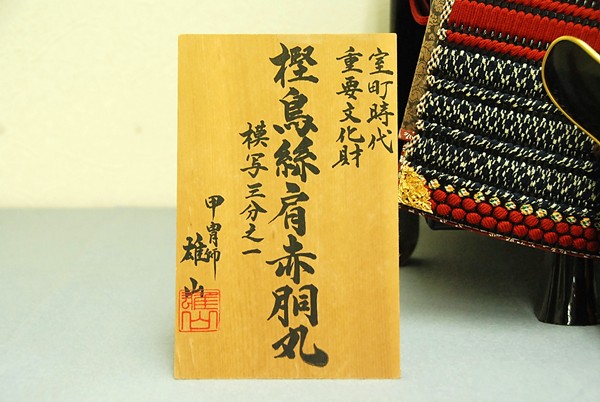 室町時代
重要文化財
樫鳥絲肩赤胴丸
模写三分之一
甲冑師
雄山
雄山